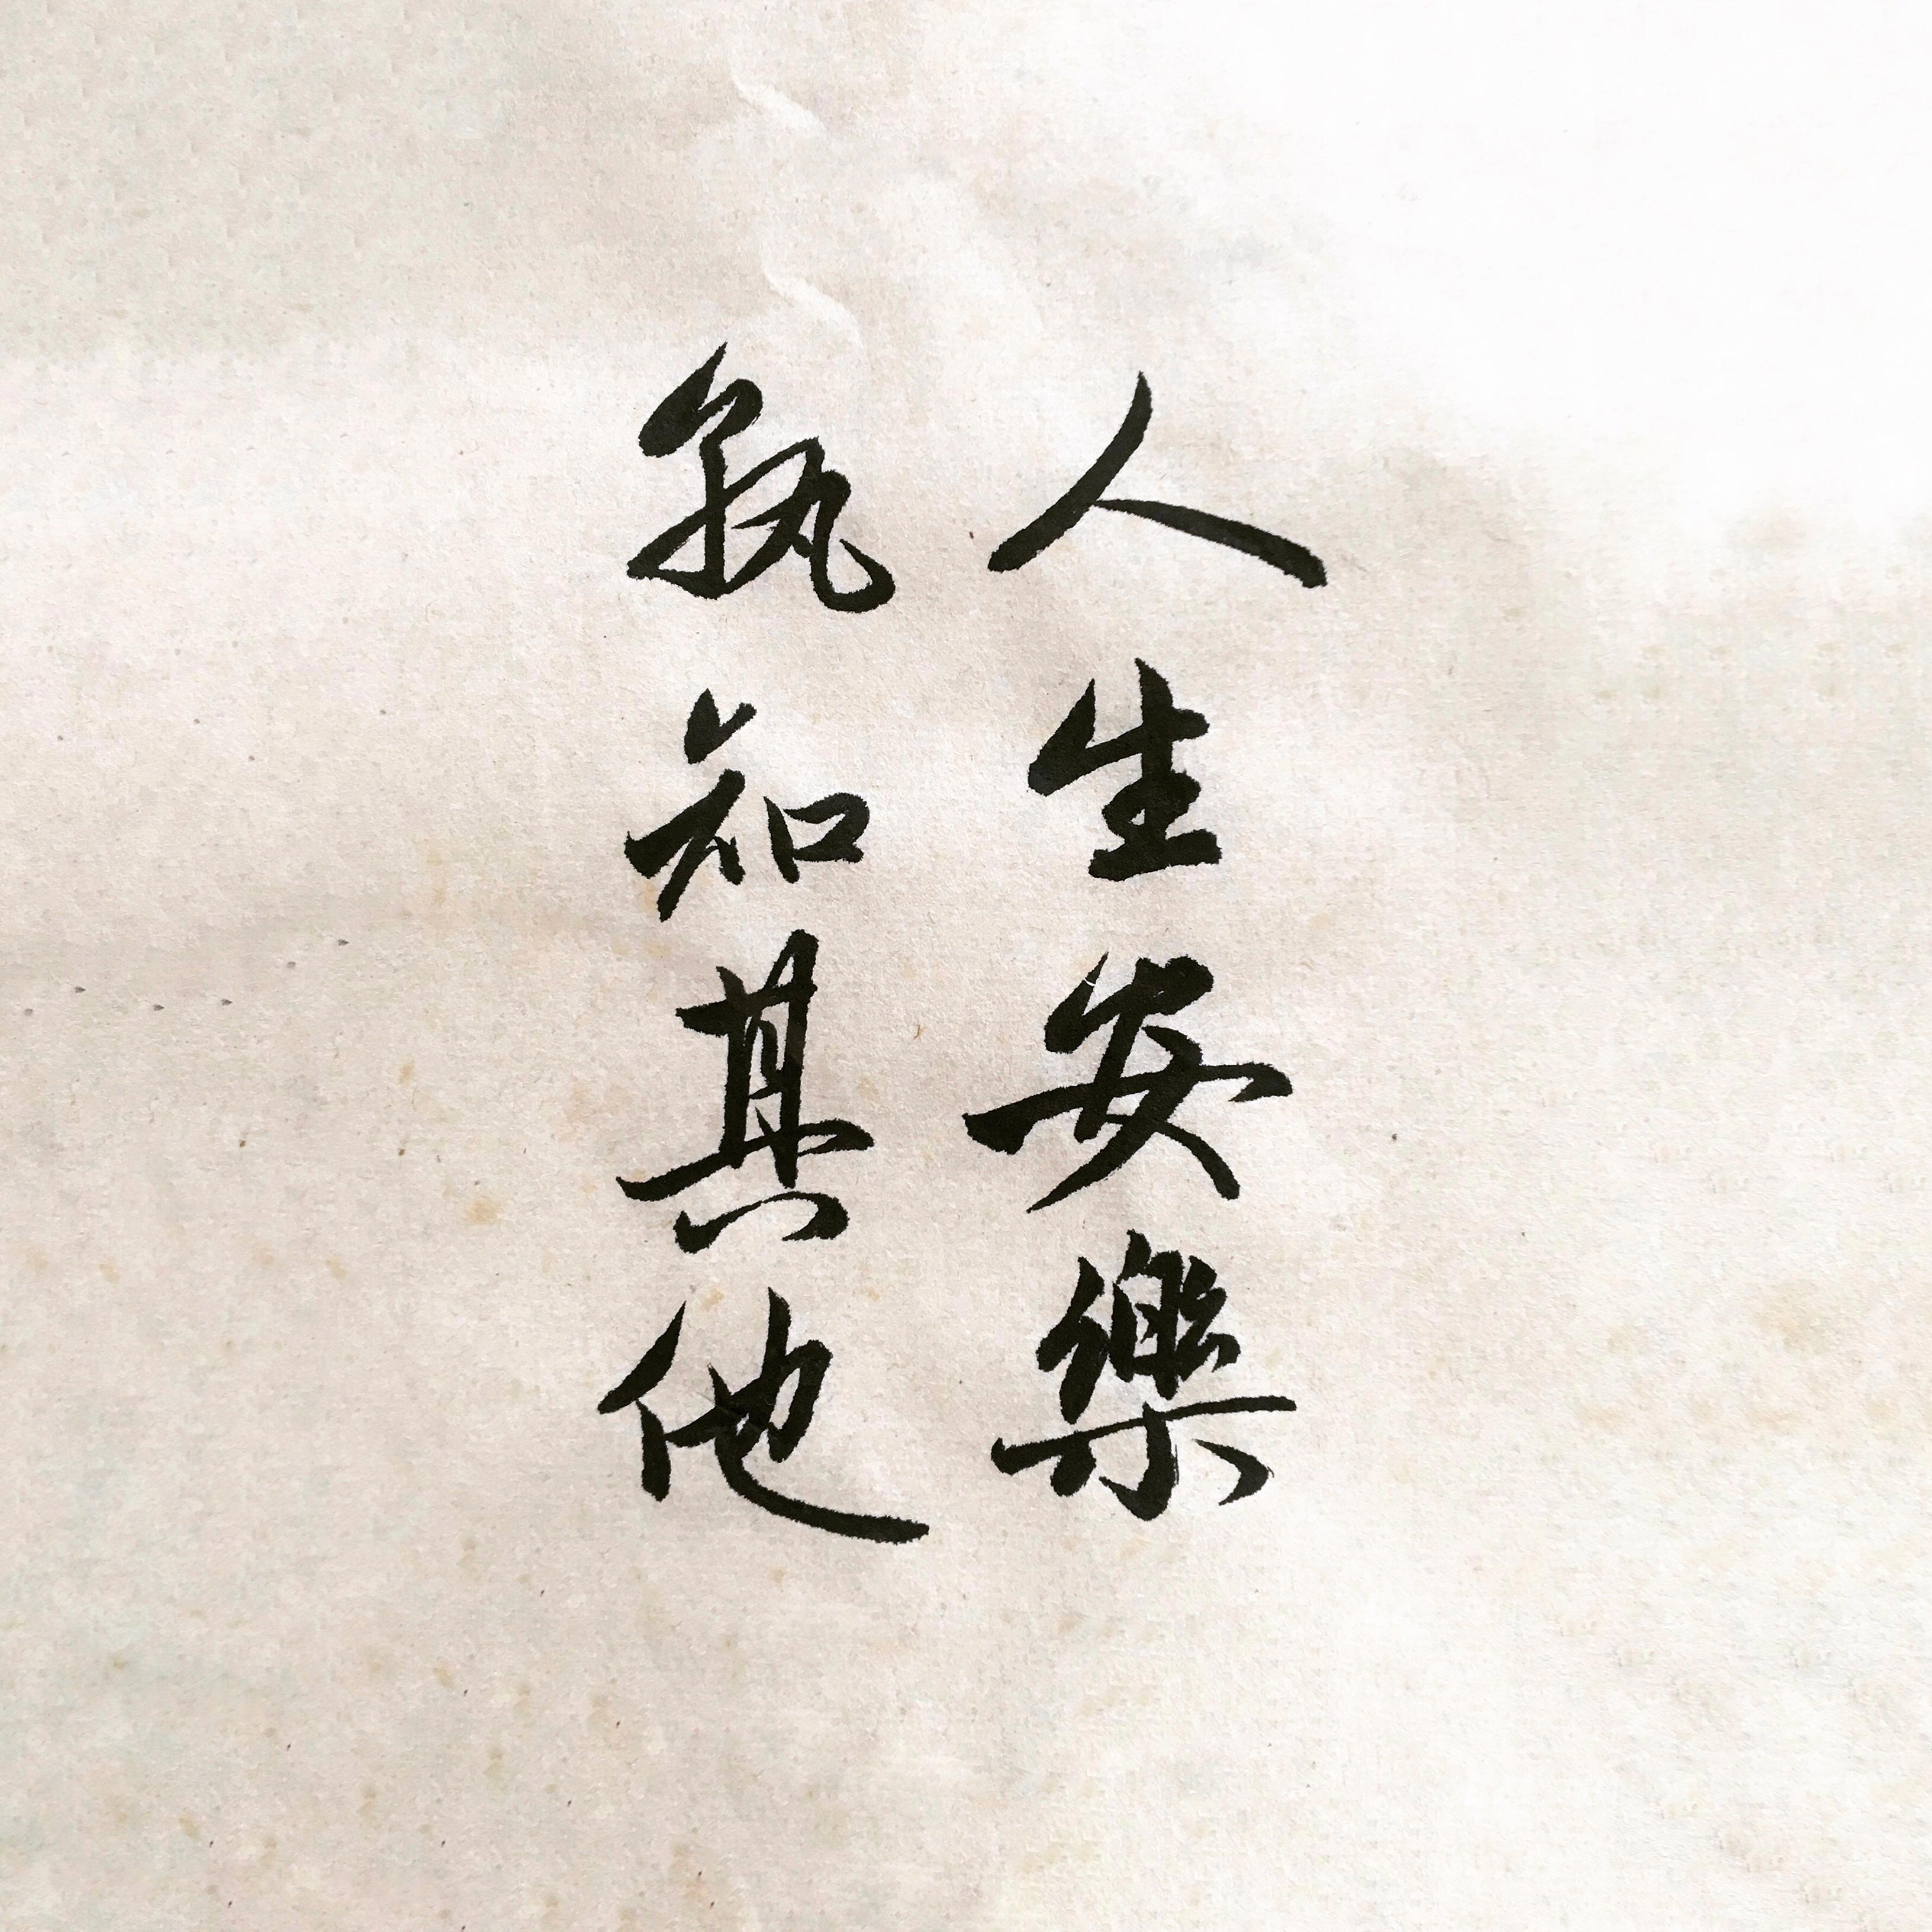 人生安樂
孰知其他